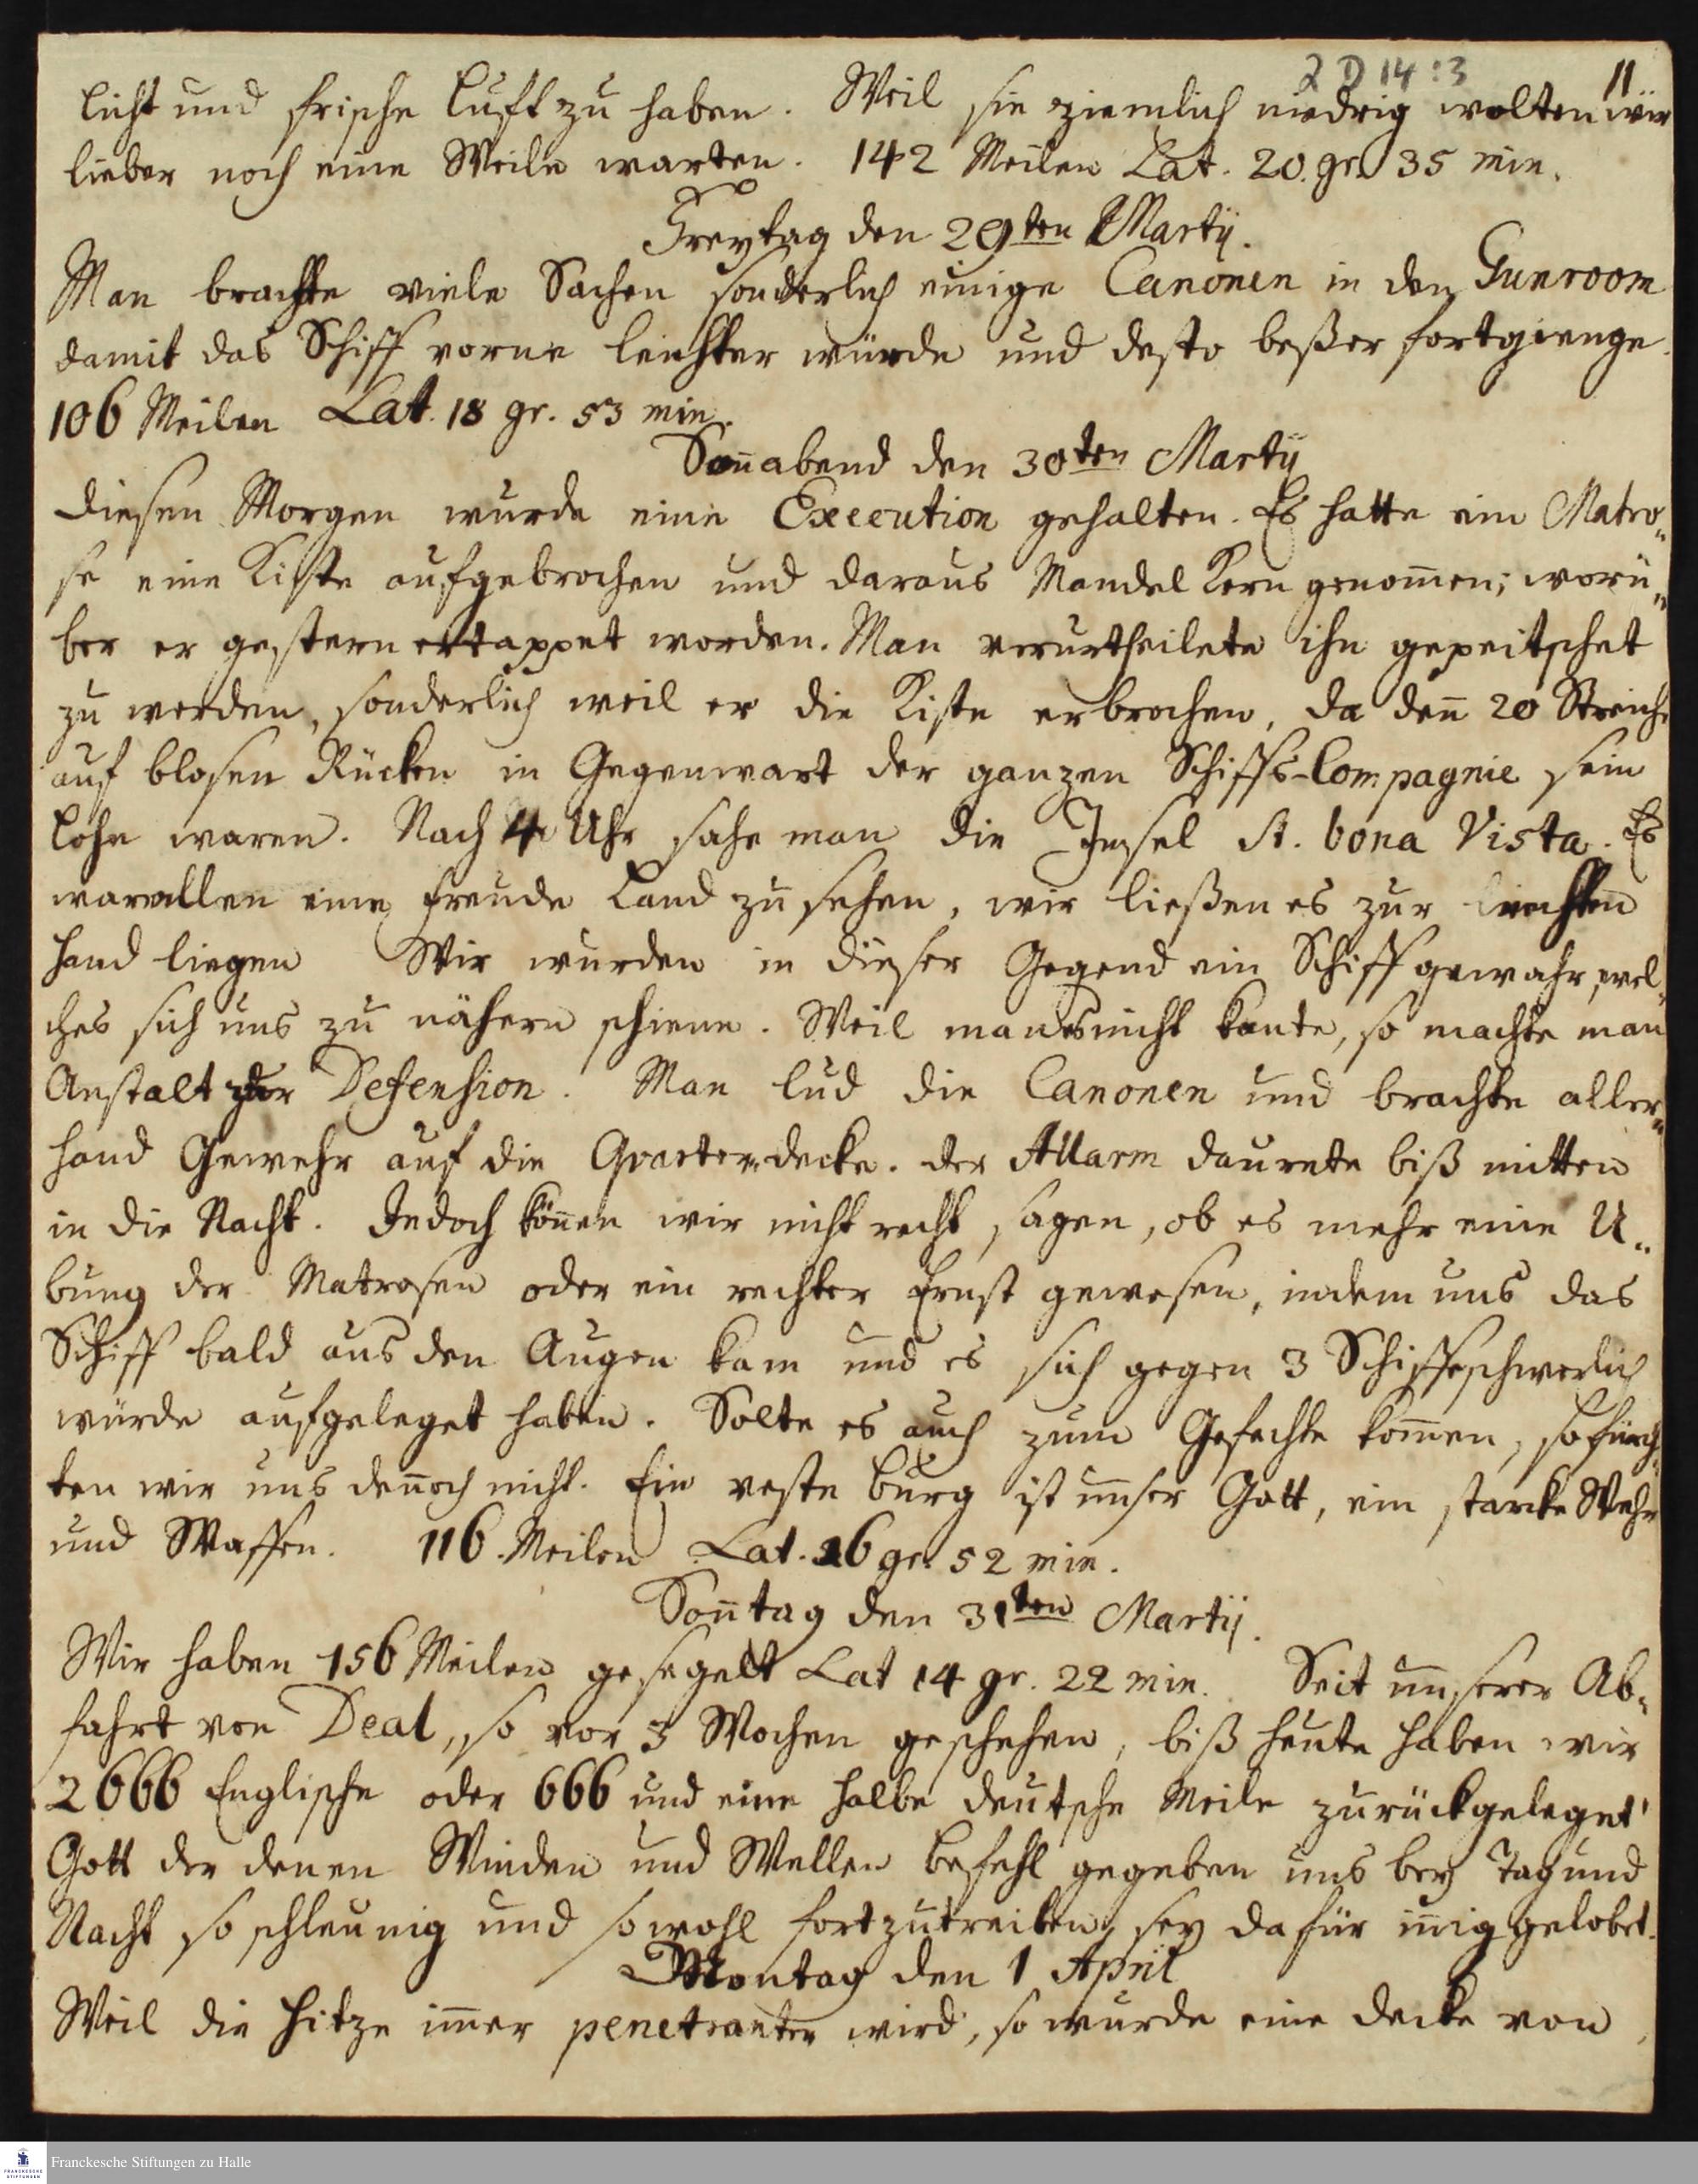 2 D 14 : 3
11
Licht und frische Luft zu haben. Weil sie ziemlich niedrig wolten wir
lieber noch eine Weile warten. 142 Meilen Lat. 20. gr. 35 min.
Freytag den 29ten Martij.
Man brachte viele Sachen sonderlich einige Canonen in den Gunroom
damit das Schiff vorne leichter würde und desto beßer fortgienge.
106 Meilen Lat. 18 gr. 53 min.
Soñabend den 30ten Martij
Diesen Morgen wurde eine Execution gehalten. Es hatte ein Matro„
se eine Kiste aufgebrochen und daraus Mandel Kern genom̄en; worü„
ber er gestern ertappet worden. Man verurtheilete ihn gepeitschet
zu werden, sonderlich weil er die Kiste erbrochen, da deñ 20 Streiche
auf blosen Rücken in Gegenwart der ganzen Schiffs-Compagnie sein
Lohn waren. Nach 4 Uhr sahe man die Insel St. bona Vista. Es
war allen eine Freude Land zu sehen, wir ließen es zur rechten
Hand liegen Wir wurden in dieser Gegend ein Schiff gewahr, wel„
ches sich uns zu nähern schiene. Weil man es nicht kante, so machte man
Anstalt zur Defension. Man lud die Canonen und brachte aller„
hand Gewehr auf die Qvarter„decke. der Allarm daurete biß mitten
in die Nacht. Jedoch köñen wir nicht recht sagen, ob es mehr eine U„
bung der Matrosen oder ein rechter Ernst gewesen, indem uns das
Schiff bald aus den Augen kam und es sich gegen 3 Schiffe schwerlich
würde aufgeleget haben. Solte es auch zum Gefechte kom̄en, so fürch„
ten wir uns deñoch nicht. Ein veste Burg ist unser Gott, ein starcke Wehr
und Waffen. 116. Meilen Lat. 16 gr. 52 min.
Soñtag den 31ten Martij.
Wir haben 156 Meilen gesegelt Lat 14 gr. 22 min. Seit unserer Ab„
fahrt von Deal, so vor 3 Wochen geschehen, biß heute haben wir
2666 Englische oder 666 und eine halbe deutsche Meile zurückgeleget
Gott der denen Winden und Wellen Befehl gegeben uns bey Tag und
Nacht so schleunig und so wohl fortzutreiben, sey dafür iñig gelobet.
Montag den 1 April
Weil die Hitze im̄er penetranter wird, so wurde eine Decke von
Franckesche Stiftungen zu Halle
FRANCKESCHE
STIFTUNGEN